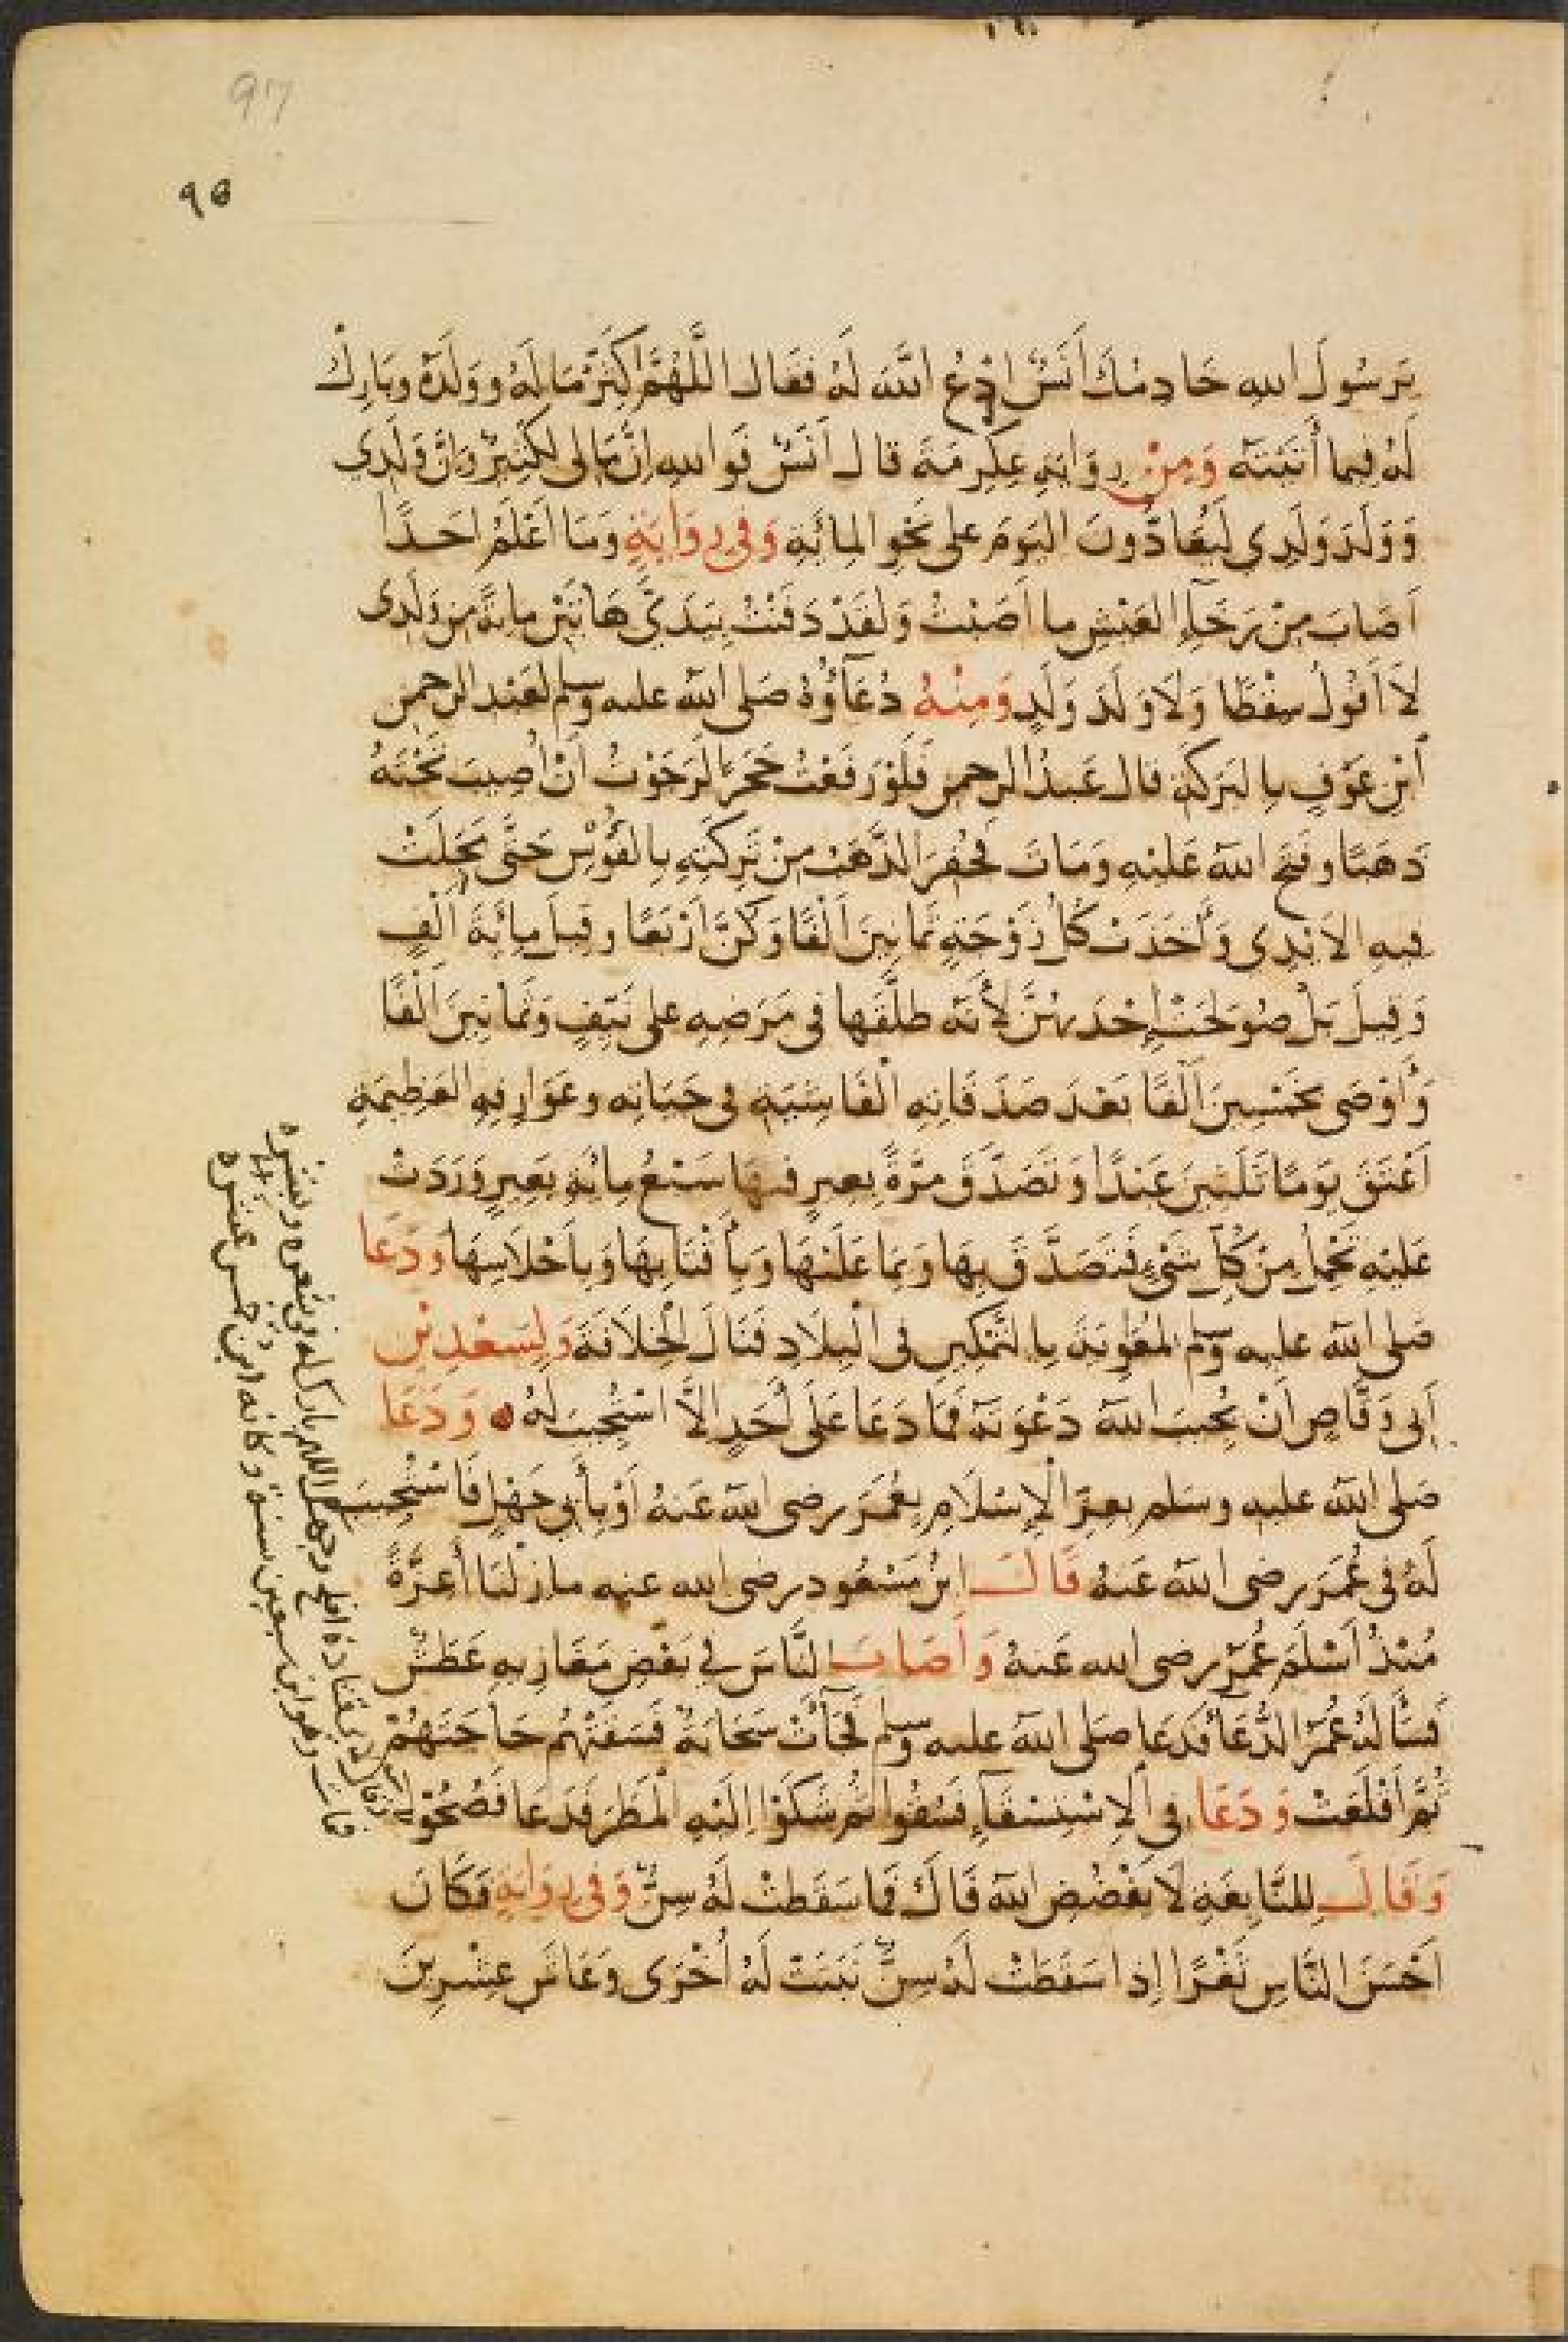 97
٩٥
يَرَسُولَ اللهِ خَادِمُكَ اَنَسٌ ادْعُ اللهَ لَهُ فقَالَ اللَّهُمَّ اَكْثِرْ مَالَهُ وَوَلَدَهُ وبَارِكْ
لَهُ فِيما أَتَيْتَهُ وَمِنْ رِوَايَةِ عِكْرِمَةَ قال اَنَسٌ فَوَاللهِ اِنَّ مَالِى لَكَثِيرٌ وَاِنَّ وَلَدِي
وَوَلَدَ وَلَدِي لَيُعَادُّونَ اليَوْمَ على نَحْوِ المِائَةِ وَفى رِوَايَةٍ وَمَا اَعْلَمُ اَحَدًا
اَصَابَ مِنْ رَخَاءِ العَيْشِ ما اَصَبْتُ وَلَقَدْ دَفَنْتُ بِيَدَيَّ هَاتَيْنِ مِائَةً مِن وَلَدِى
لاَ اَقُولُ سِقْطًا وَلَا وَلَدَ وَلَدٍ وَمِنْهُ دُعَاؤُهُ صَلى اللهُ عليه وسلم لعَبْدِ الرحمن
ابْنِ عَوْفٍ بِالبَرَكَةِ قال عَبْدُ الرحمن فَلَوْ رَفَعْتُ حَجَرًا لَرَجَوْتُ اَنْ اُصِيبَ تَحْتَهُ
ذَهَبًا وفَتَحَ اللهُ عَلَيْهِ وَمَاتَ فحُفِرَ الذَّهَبُ مِنْ تَرِكَتِهِ بِالفُؤُسِ حَتَّى مَجِلَتْ
فيهِ الاَيْدِى وَأَخَذَتْ كُلُّ زَوْجَةٍ ثَمَانِينَ اَلْفًا وَكُنَّ اَرْبَعًا وقِيلَ مِائَةَ اَلْفٍ
وَقِيلَ بَلْ صُولِحَتْ اِحْدَيهُنَّ لِأَنَّهُ طلَّقَها فى مَرَضِهِ على نَيِّفٍ وَثَمانِينَ اَلْفًا
وَأَوْصَى بخَمْسِينَ اَلْفًا بَعْدَ صَدَقَاتِهِ الْفَاشِيَةِ فى حَيَاتِهِ وعَوَارِفِهِ العَظِيمَةِ
اَعْتَقَ يَوْمًا ثَلَثِينَ عَبْدًا وَتَصَدَّقَ مَرَّةً بِعِيرٍ فيهَا سَبْعُ مِائَةِ بَعِيرٍ وَرَدَتْ
عَلَيْهِ تَحْمِلُ مِنْ كُلِّ شَىْءٍ فَتَصَدَّقَ بِهَا وَبِمَا عَلَيْهَا وَبِأَقْتَابِهَا وَبِأَحْلَاسِهَا وَدَعَا
صَلى اللهُ عليه وسلم لمُعَوِيَةَ بِالتَّمْكِينِ فى الْبِلَادِ فَنَالَ الْخِلَافَةَ وَلِسَعْدِ بْنِ
اَبِى وَقَّاصٍ اَنْ يُجِيبَ اللهُ دَعْوَتَهُ فَمَا دَعَا عَلَى أَحَدٍ اِلَّا اسْتُجِيبَ لَهُ وَدَعَا
صَلى اللهُ عليه وسلم بعِزِّ الْاِسْلَامِ بِعُمَرَ رضى اللهُ عَنهُ اَوْ بِأَبِى جَهْلٍ فَاسْتُجِيبَ
لَهُ فى عُمَرَ رضى اللهُ عَنهُ قَالَ ابْنُ مَسْعُودٍ رضى الله عنه مازِلْنَا أَعِزَّةً
مُنْذُ اَسْلَمَ عُمَرُ رضى الله عَنهُ وَأَصَابَ النَّاسَ فى بَعْضِ مَغَازِيهِ عَطَشٌ
فَسَأَلَهُ عُمَرُ الدُّعَاءَ فَدَعَا صَلى اللهُ عليه وسلم فَجَاءَتْ سَحَابَةٌ فَسَقَتْهُم حَاجَتَهُمْ
ثُمَّ اَقْلَعَتْ وَدَعَا فى الْاِسْتِسْقَاءِ فَسُقُوا ثُمَّ شَكَوْا اِلَيْهِ الْمَطَرَ فَدَعَا فَصَحَوْا
وَقَالَ لِلنَّابِغَةِ لَا يَفْضُضِ اللهُ فَاكَ فَمَا سَقَطَتْ لَهُ سِنٌّ وَفى رِوَايَةٍ فَكَانَ
اَحْسَنَ النَّاسِ ثَغْرًا اِذا سَقَطَتْ لَهُ سِنٌّ نَبَتَتْ لَهُ اُخْرَى وَعَاشَ عِشْرِينَ
وقال لابى قتادة افلح وجهك اللهم بارك له فى شعره وبشره
فمات وهو ابن سبعين سنة وكانه ابن خمس عشرة